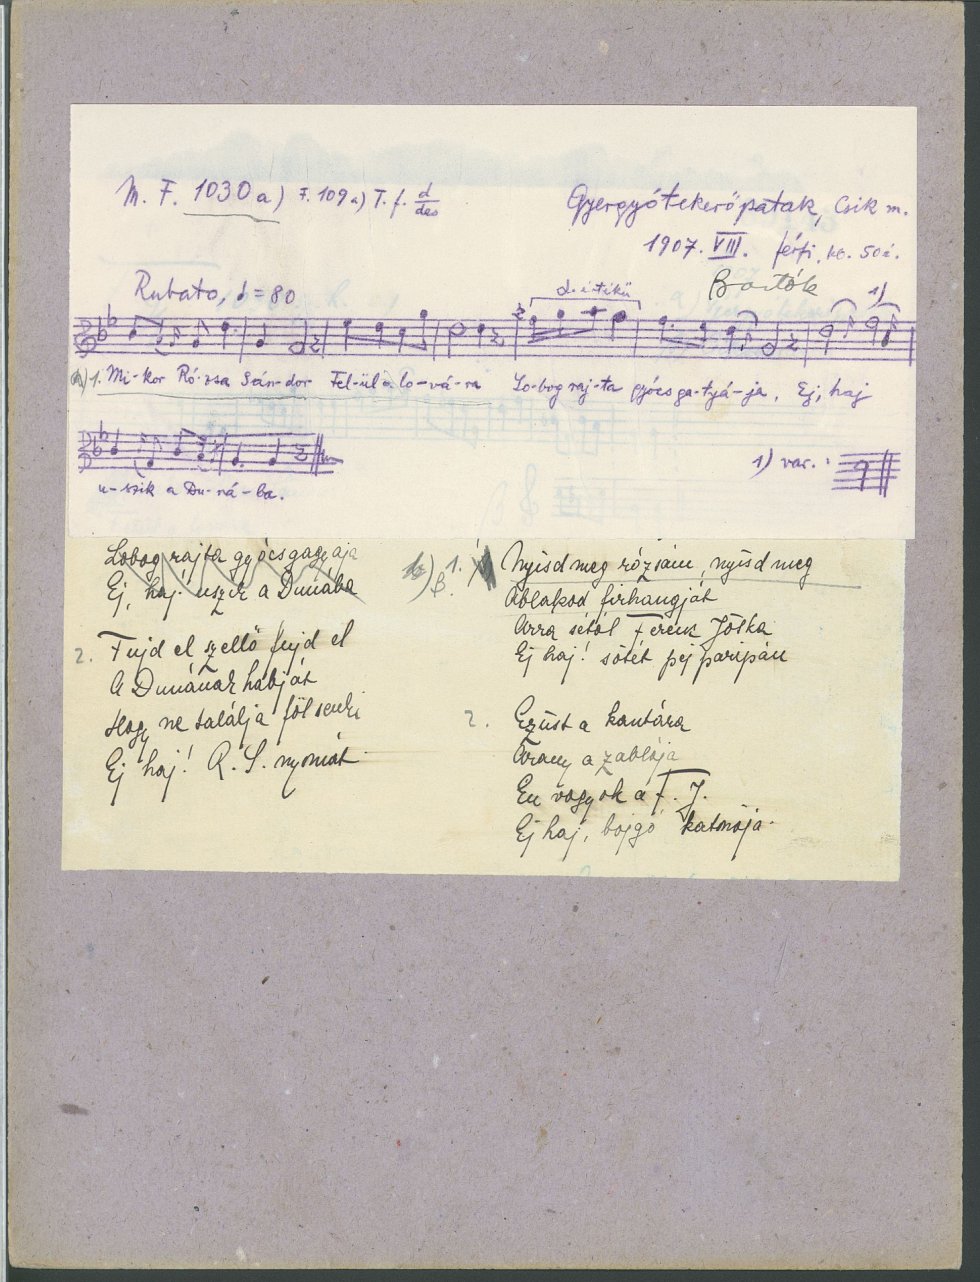 M. F. 1030 a) F. 109 a) T. f. d/des
Gyergyótekerőpatak, Csik m.
1907. VIII. férfi, kb. 50 é.
Bartók
Rubato, ♩ = 80
1)
a) 1. Mi-kor Ró-zsa Sán-dor Fel-ül a lo-vá-ra Lo-bog raj-ta gyócsga-tyá-ja, Ej, haj
1) var. :
u-szik a Du-ná-ba.
Lobog rajta gyócsgagyaja
Ej, haj! uszik a Dunába
2. Fujd el szellő fujd el
A Dunának habját
Hogy ne találja föl senki
Ej haj! R. S. nyomát
b) B. 1. Nyisd meg rózsám, nyisd meg
Ablakod firhangját
Arra sétál Ferenc Jóska
Ej haj! sötét pej paripán
2. Ezüst a kantára
Arany a zablája
Én vagyok a F. J.
Ej haj, bojgó katonája